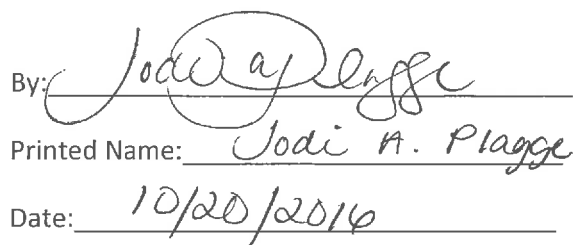 By: Jodi A Plagge
Printed Name: Jodi A. Plagge
Date: 10/20/2016